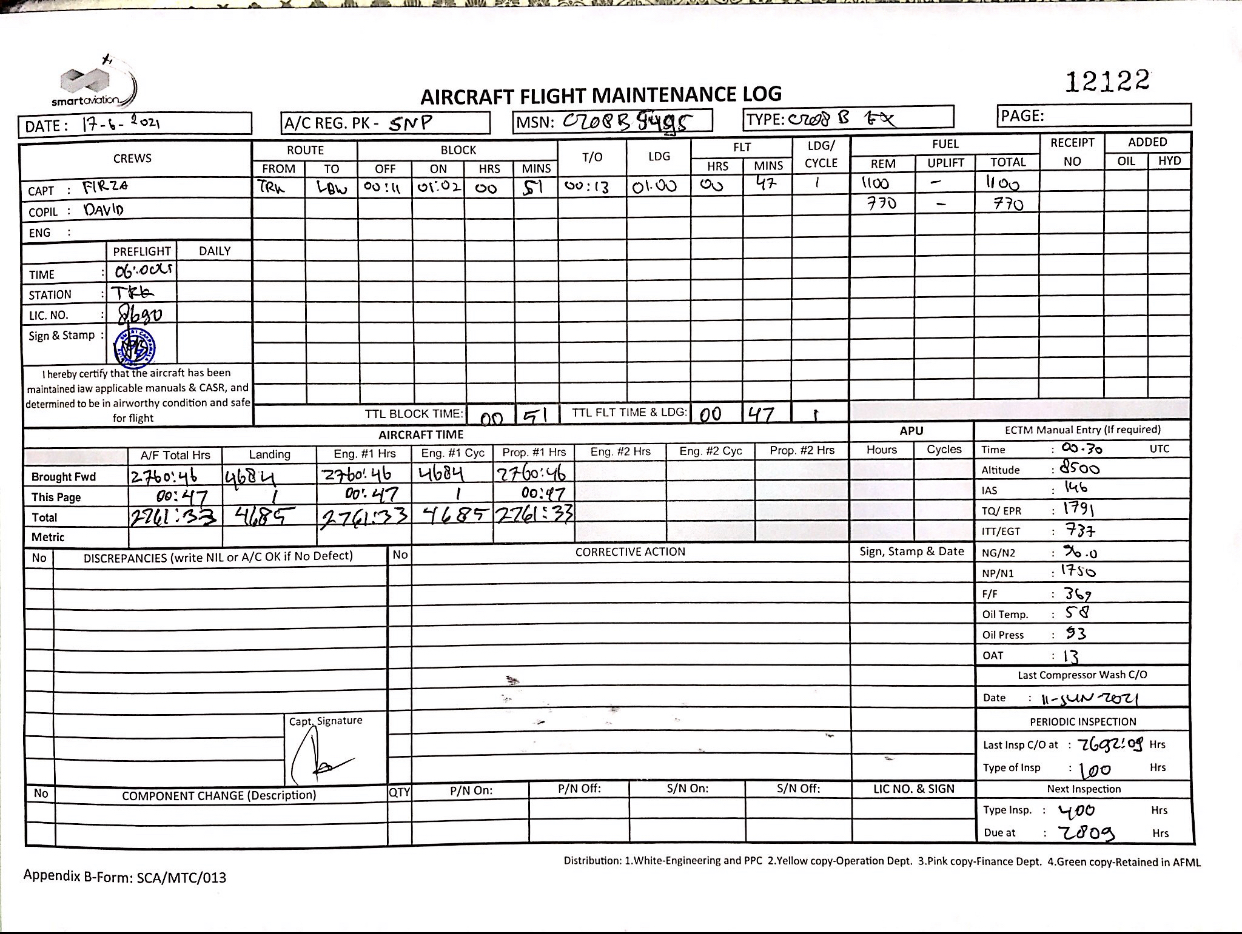 12122
smartaviation
AIRCRAFT FLIGHT MAINTENANCE LOG
DATE : 17-6-2021 A/C REG. PK - SNP MSN: C208B 5495 TYPE: C208 B EX PAGE:
CREWS ROUTE BLOCK T/O LDG FLT LDG/ CYCLE FUEL RECEIPT NO ADDED
FROM TO OFF ON HRS MINS HRS MINS REM UPLIFT TOTAL OIL HYD
CAPT : FIRZA TRK LBW 00:11 01:02 00 51 00:13 01.00 00 47 1 1100 - 1100
COPIL : DAVID 770 - 770
ENG :
PREFLIGHT DAILY
TIME :
STATION : TRK
LIC. NO. : 8690
Sign & Stamp :
I hereby certify that the aircraft has been
maintained iaw applicable manuals & CASR, and
determined to be in airworthy condition and safe
for flight
TTL BLOCK TIME: 00 51 TTL FLT TIME & LDG: 00 47 1
AIRCRAFT TIME APU ECTM Manual Entry (If required)
A/F Total Hrs Landing Eng. #1 Hrs Eng. #1 Cyc Prop. #1 Hrs Eng. #2 Hrs Eng. #2 Cyc Prop. #2 Hrs Hours Cycles
Brought Fwd 2760:46 4684 2760:46 4684 2760:46
This Page 00:47 1 00:47 1 00:47
Total 2761:33 4685 2761:33 4685 2761:33
Metric
Time : 00.30 UTC
Altitude : 8500
IAS : 146
TQ/ EPR : 1791
ITT/EGT : 737
NG/N2 :
NP/N1 : 1750
F/F : 369
Oil Temp. : 58
Oil Press : 93
OAT : 13
Last Compressor Wash C/O
Date : 11-JUN-2021
PERIODIC INSPECTION
Last Insp C/O at : 2692:09 Hrs
Type of Insp : 100 Hrs
Next Inspection
Type Insp. : 400 Hrs
Due at : 2809 Hrs
No DISCREPANCIES (write NIL or A/C OK if No Defect) No CORRECTIVE ACTION Sign, Stamp & Date
Capt. Signature
No COMPONENT CHANGE (Description) QTY P/N On: P/N Off: S/N On: S/N Off: LIC NO. & SIGN
Distribution: 1.White-Engineering and PPC 2.Yellow copy-Operation Dept. 3.Pink copy-Finance Dept. 4.Green copy-Retained in AFML
Appendix B-Form: SCA/MTC/013